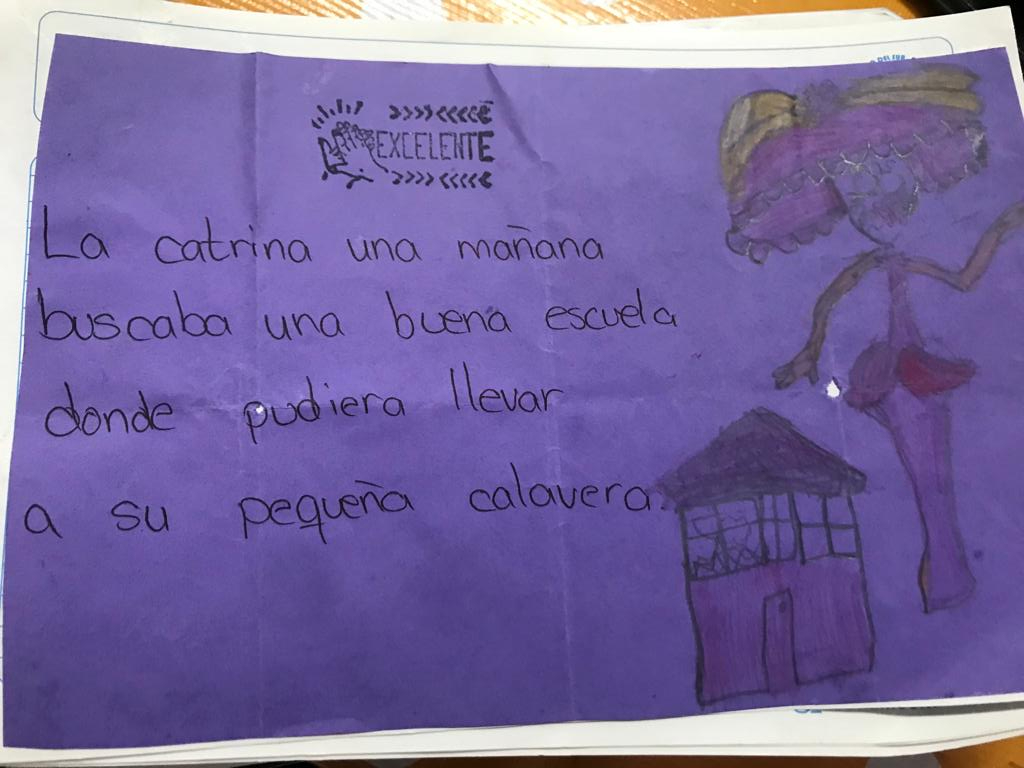 EXCELENTE
La catrina una mañana
buscaba una buena escuela
donde pudiera llevar
a su pequeña calavera.